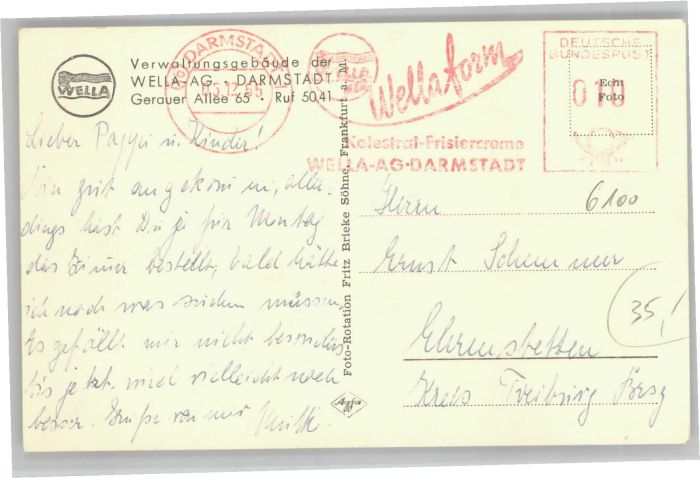 WELLA
Verwaltungsgebäude der
WELLA-AG · DARMSTADT
Gerauer Allee 65 · Ruf 5041
DARMSTADT
WELLA
Wellaform
Kolestral-Frisiercreme
WELLA-AG-DARMSTADT
DEUTSCHE
BUNDESPOST
010
Echt
Foto
Lieber Pappi u. Kinder!
Bin gut angekommen, aller-
dings hast Du ja für Montag
das Zimmer bestellt, bald hätte
ich noch was suchen müssen.
Es gefällt mir nicht besonders
bis jetzt. wird vielleicht noch
besser. Grüße von
Foto-Rotation Fritz Brieke Söhne, Frankfurt a. M.
Agfa
6100
Herrn
Ernst Schemmer
35,-
Ehrenstetten
Kreis Freiburg Brsg